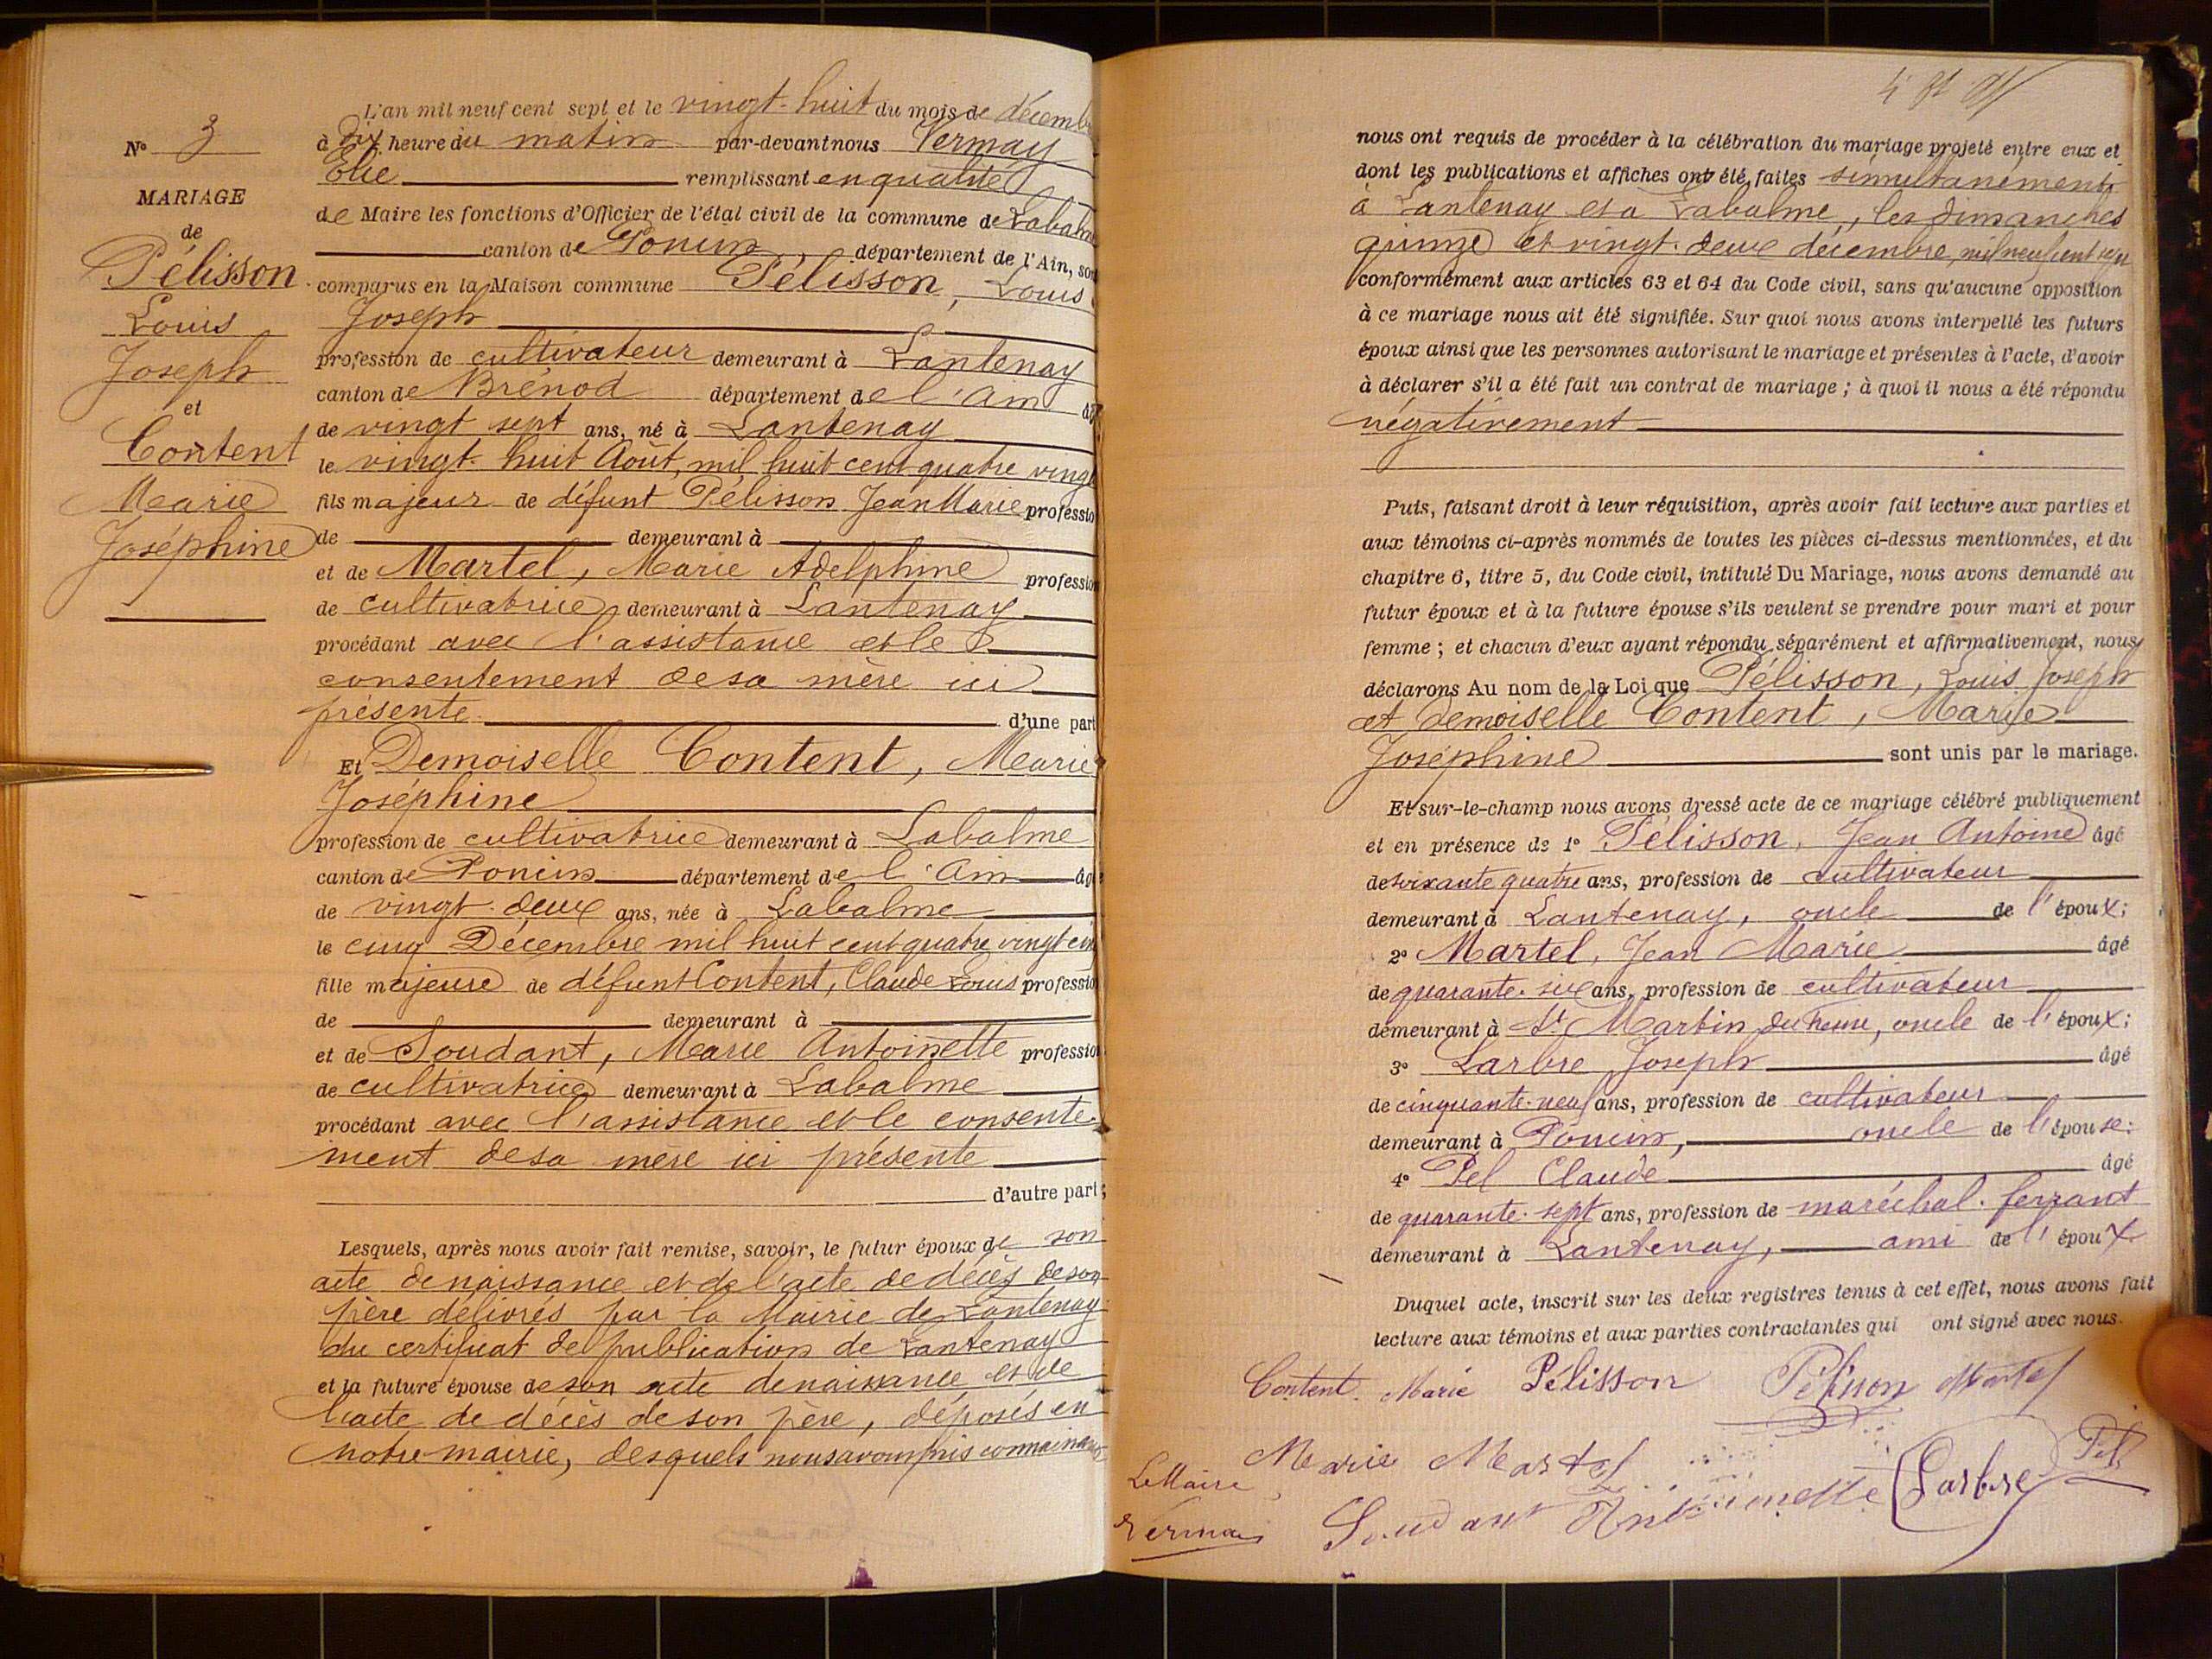 N° 3
MARIAGE
de
Pélisson
Louis
Joseph
et
Content
Marie
Joséphine
L'an mil neuf cent sept et le vingt-huit du mois de décemb
à dix heure du matin par-devant nous Vermay
Elie remplissant en qualité
de Maire les fonctions d'Officier de l'état civil de la commune de Labalme
canton de Poncin, département de l'Ain, sont
comparus en la Maison commune Pélisson, Louis
Joseph
profession de cultivateur demeurant à Lantenay
canton de Brénod département de l'Ain âgé
de vingt sept ans, né à Lantenay
le vingt-huit Août, mil huit cent quatre vingt
fils majeur de défunt Pélisson Jean Marie profession
de demeurant à
et de Martel, Marie Adelphine profession
de cultivatrice demeurant à Lantenay
procédant avec l'assistance et le
consentement de sa mère ici
présente d'une part
Et Demoiselle Content, Marie
Joséphine
profession de cultivatrice demeurant à Labalme
canton de Poncin département de l'Ain âgé
de vingt-deux ans, née à Labalme
le cinq Décembre mil huit cent quatre vingt cinq
fille majeure de défunt Content, Claude Louis profession
de demeurant à
et de Soudant, Marie Antoinette profession
de cultivatrice demeurant à Labalme
procédant avec l'assistance et le consente-
ment de sa mère ici présente
d'autre part;
Lesquels, après nous avoir fait remise, savoir, le futur époux de son
acte de naissance et de l'acte de décès de son
père délivrés par la Mairie de Lantenay
du certificat de publication de Lantenay
et la future épouse de son acte de naissance et de
l'acte de décès de son père, déposés en
notre mairie, desquels nous avons pris connaissance
nous ont requis de procéder à la célébration du mariage projeté entre eux et
dont les publications et affiches ont été faites simultanément
à Lantenay et à Labalme, les dimanches
quinze et vingt-deux décembre, mil neuf cent sept
conformément aux articles 63 et 64 du Code civil, sans qu'aucune opposition
à ce mariage nous ait été signifiée. Sur quoi nous avons interpellé les futurs
époux ainsi que les personnes autorisant le mariage et présentes à l'acte, d'avoir
à déclarer s'il a été fait un contrat de mariage; à quoi il nous a été répondu
négativement
Puis, faisant droit à leur réquisition, après avoir fait lecture aux parties et
aux témoins ci-après nommés de toutes les pièces ci-dessus mentionnées, et du
chapitre 6, titre 5, du Code civil, intitulé Du Mariage, nous avons demandé au
futur époux et à la future épouse s'ils veulent se prendre pour mari et pour
femme; et chacun d'eux ayant répondu séparément et affirmativement, nous
déclarons Au nom de la Loi que Pélisson, Louis Joseph
et Demoiselle Content, Marie
Joséphine sont unis par le mariage.
Et sur-le-champ nous avons dressé acte de ce mariage célébré publiquement
et en présence de 1° Pélisson, Jean Antoine âgé
de soixante quatre ans, profession de cultivateur
demeurant à Lantenay, oncle de l'époux;
2° Martel, Jean Marie âgé
de quarante-six ans, profession de cultivateur
demeurant à St Martin du Fresne, oncle de l'époux;
3° Larbre Joseph âgé
de cinquante-neuf ans, profession de cultivateur
demeurant à Poncin, oncle de l'épouse;
4° Pel Claude âgé
de quarante-sept ans, profession de maréchal-ferrant
demeurant à Lantenay, ami de l'époux
Duquel acte, inscrit sur les deux registres tenus à cet effet, nous avons fait
lecture aux témoins et aux parties contractantes qui ont signé avec nous.
Content Marie Pélisson Pélisson Martel
Marie Martel
Le Maire
Soudant Antoinette Larbre Pel
Vermay